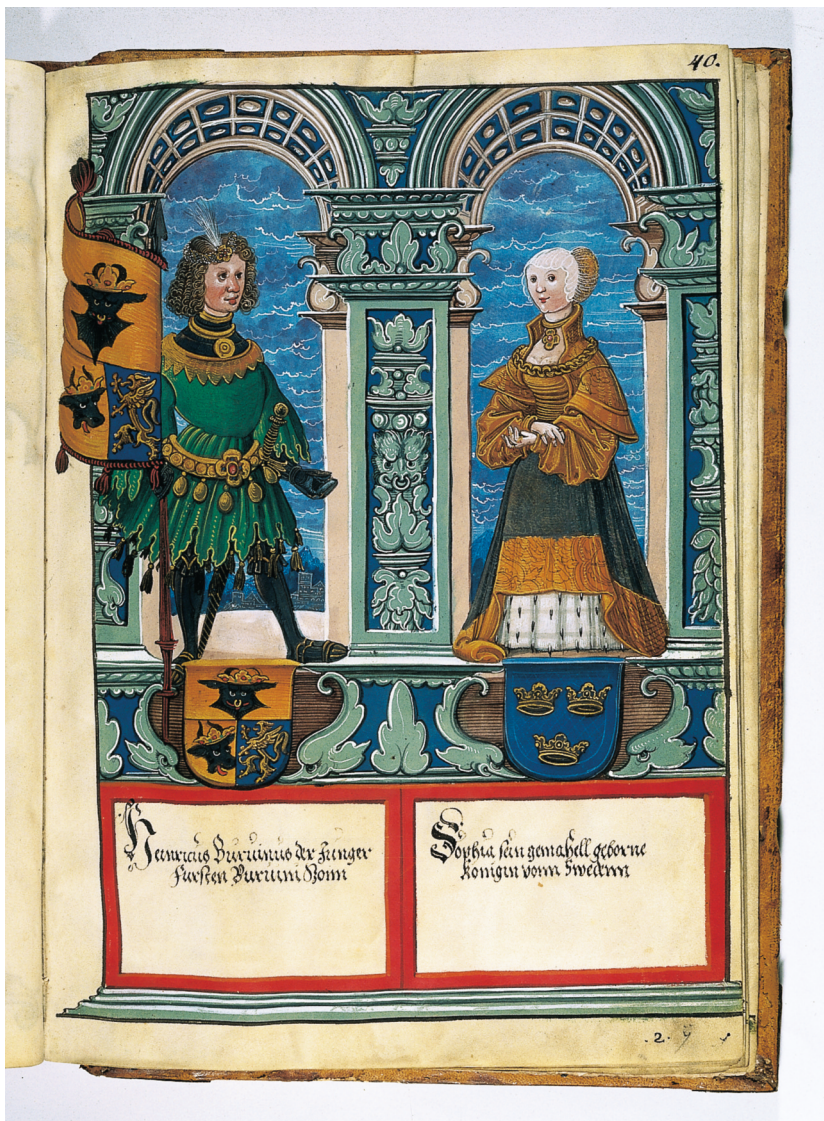 40.
Heinricus Buruinus der Junger
Fursten Buruini Sonn
Sophia sein gemahell geborne
Konigin vonn Swedenn
.2.